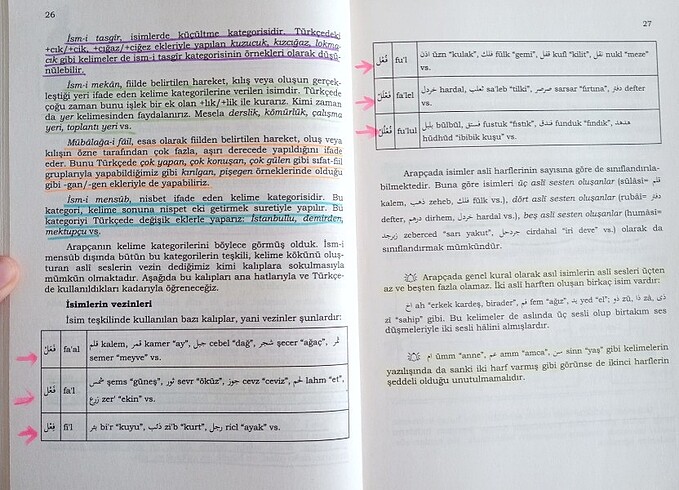 26
İsm-i tasgîr, isimlerde küçültme kategorisidir. Türkçedeki
+cık/+cik, +cığaz/+ciğez ekleriyle yapılan kuzucuk, kızcığaz, lokma-
cık gibi kelimeler de ism-i tasgîr kategorisinin örnekleri olarak düşü-
nülebilir.
İsm-i mekân, fiilde belirtilen hareket, kılış veya oluşun gerçek-
leştiği yeri ifade eden kelime kategorilerine verilen isimdir. Türkçede
çoğu zaman bunu işlek bir ek olan +lık/+lik ile kurarız. Kimi zaman
da yer kelimesinden faydalanırız. Mesela derslik, kömürlük, çalışma
yeri, toplantı yeri vs.
Mübâlağa-i fâil, esas olarak fiilden belirtilen hareket, oluş veya
kılışın özne tarafından çok fazla, aşırı derecede yapıldığını ifade
eder. Bunu Türkçede çok yapan, çok konuşan, çok gülen gibi sıfat-fiil
gruplarıyla yapabildiğimiz gibi kırılgan, pişegen örneklerinde olduğu
gibi -gan/-gen ekleriyle de yapabiliriz.
İsm-i mensûb, nisbet ifade eden kelime kategorisidir. Bu
kategori, kelime sonuna nispet eki getirmek suretiyle yapılır. Bu
kategoriyi Türkçede değişik eklerle yaparız: İstanbullu, demirden,
mektupçu vs.
Arapçanın kelime kategorilerini böylece görmüş olduk. İsm-i
mensûb dışında bütün bu kategorilerin teşkili, kelime kökünü oluş-
turan aslî seslerin vezin dediğimiz kimi kalıplara sokulmasıyla
mümkün olmaktadır. Aşağıda bu kalıpları ana hatlarıyla ve Türkçe-
de kullanıldıkları kadarıyla öğreneceğiz.
İsimlerin vezinleri
İsim teşkilinde kullanılan bazı kalıplar, yani vezinler şunlardır:
فَعَلْ fa'al قلم kalem, قمر kamer "ay", جبل cebel "dağ", شجر şecer "ağaç", ثمر
semer "meyve" vs.
فَعْلْ fa'l شمس şems "güneş", ثور sevr "öküz", جوز cevz "ceviz", لحم lahm "et",
زرع zer' "ekin" vs.
فِعْلْ fi'l بئر bi'r "kuyu", ذئب zi'b "kurt", رجل ricl "ayak" vs.
27
فُعْلْ fu'l اذن üzn "kulak", فلك fülk "gemi", قفل kufl "kilit", نقل nukl "meze"
vs.
فَعْلَلْ fa'lel خردل hardal, ثعلب sa'leb "tilki", صرصر sarsar "fırtına", دفتر defter
vs.
فُعْلُلْ fu'lul بلبل bülbül, فستق fustuk "fıstık", فندق funduk "fındık", هدهد
hüdhüd "ibibik kuşu" vs.
Arapçada isimler aslî harflerinin sayısına göre de sınıflandırıla-
bilmektedir. Buna göre isimleri üç aslî sesten oluşanlar (sülâsî= قلم
kalem, ذهب zeheb, فلك fülk vs.), dört aslî sesten oluşanlar (rubâî= دفتر
defter, درهم dirhem, خردل hardal vs.), beş aslî sesten oluşanlar (humâsî=
زبرجد zeberced "sarı yakut", جردحل cirdahal "iri deve" vs.) olarak da
sınıflandırmak mümkündür.
Arapçada genel kural olarak asıl isimlerin aslî sesleri üçten
az ve beşten fazla olamaz. İki asli harften oluşan birkaç isim vardır:
اخ ah "erkek kardeş, birader", فم fem "ağız", يد yed "el"; ذو zû, ذا zâ, ذى
zî "sahip" gibi. Bu kelimeler de aslında üç sesli olup birtakım ses
düşmeleriyle iki sesli hâlini almışlardır.
ام ümm "anne", عم amm "amca", سن sinn "yaş" gibi kelimelerin
yazılışında da sanki iki harf varmış gibi görünse de ikinci harflerin
şeddeli olduğu unutulmamalıdır.